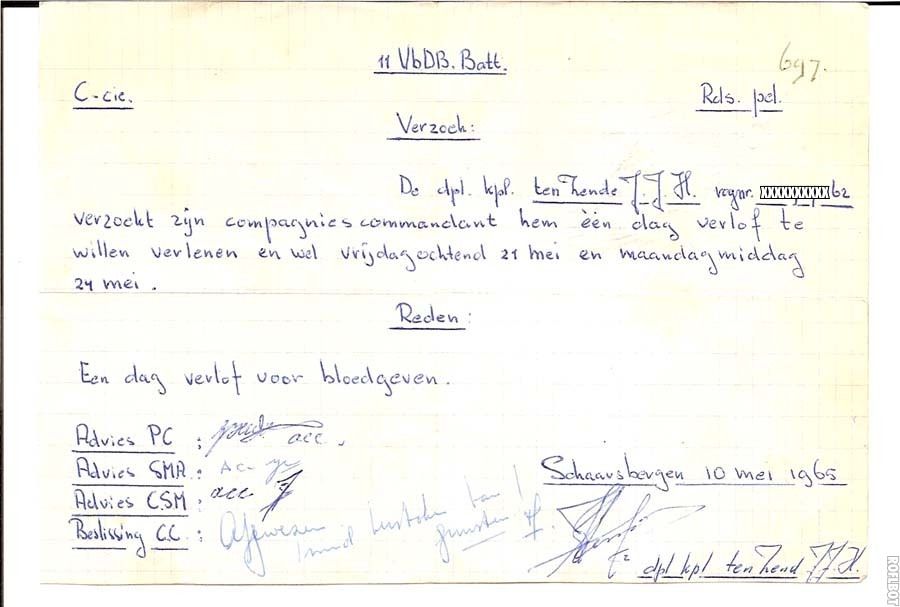 11 VbDB. Batt.
697.
C-cie.
Rds. pel.
Verzoek:
De dpl. kpl. ten Hende J.J.H. regnr. XXXXXXXXXX 62
verzoekt zijn compagniescommandant hem één dag verlof te
willen verlenen en wel vrijdagochtend 21 mei en maandagmiddag
24 mei.
Reden:
Een dag verlof voor bloedgeven.
Advies PC : acc.
Advies SMA : Acc
Advies CSM : acc
Beslissing CC : Afgewezen
Schaarsbergen 10 mei 1965
dpl kpl ten Hend J.J.H.
ROFLBOT